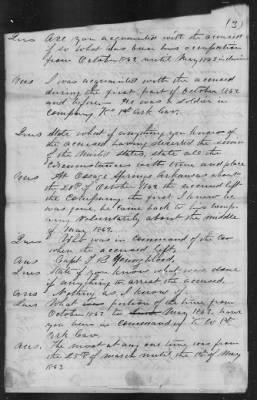 (3)
Ques Are you acquainted with the accused
if so what has been his occupation
from October 1862 until May 1863 inclusive
Ans I was acquainted with the accused
during the first part of October 1862
and before – He was a soldier in
Company K 1st Ark Cav.
Ques State what if anything you know of
the accused having deserted the service
of the United States, state all the
Circumstances with time and place
Ans At Osage Springs Arkansas about
the 20th of October 1862 the accused left
the Company, the first I knew he
was gone. He came back to his Company
voluntarily about the middle
of May 1863.
Ques Who was in command of the Co
when the accused left,
Ans Capt T B Youngblood,
Ques State if you know what was done
if anything to arrest the accused.
Ans Nothing as I know of
Ques What portion of the time from
October 1862 to May 1863, have
you been in command of Co 1st
Ark Cav.
Ans. The most at any one time was from
the 20th of March until the 1st of May
1863